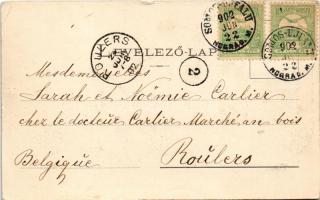 SOMOS-UJFALU
902
JUN
22
NOGRAD. M.
SOMOS-UJFALU
902
22
NOGRAD. M.
ROULERS
1902
LEVELEZŐ-LAP
2
Mesdemoiselles
Sarah et Noémie Carlier
chez le docteur Carlier Marché au bois
Belgique Roulers